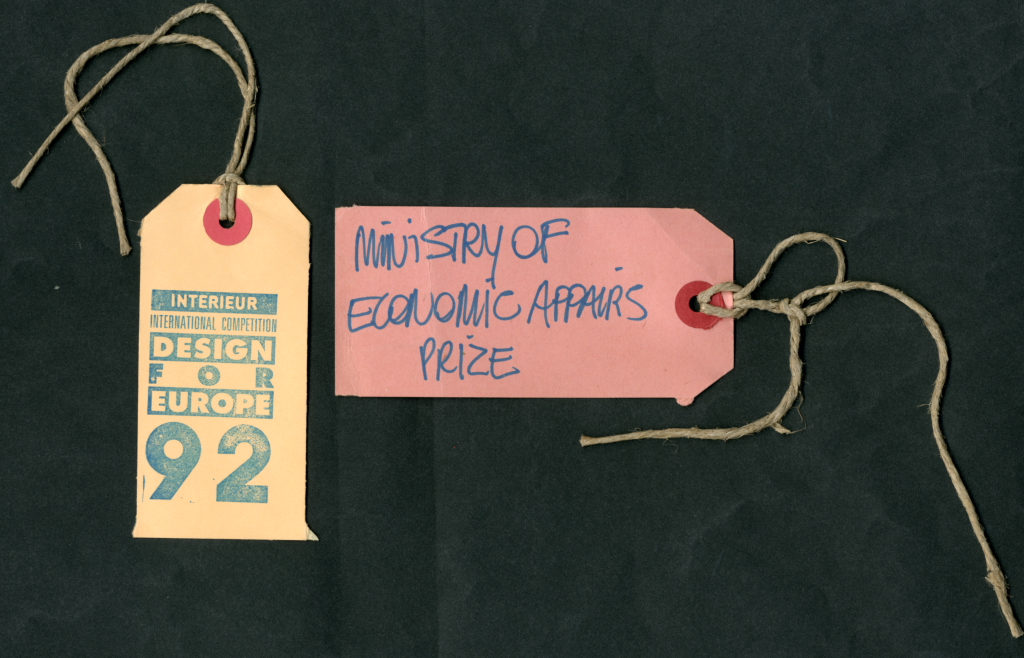 INTERIEUR
INTERNATIONAL COMPETITION
DESIGN
FOR
EUROPE
92
MINISTRY OF
ECONOMIC AFFAIRS
PRIZE